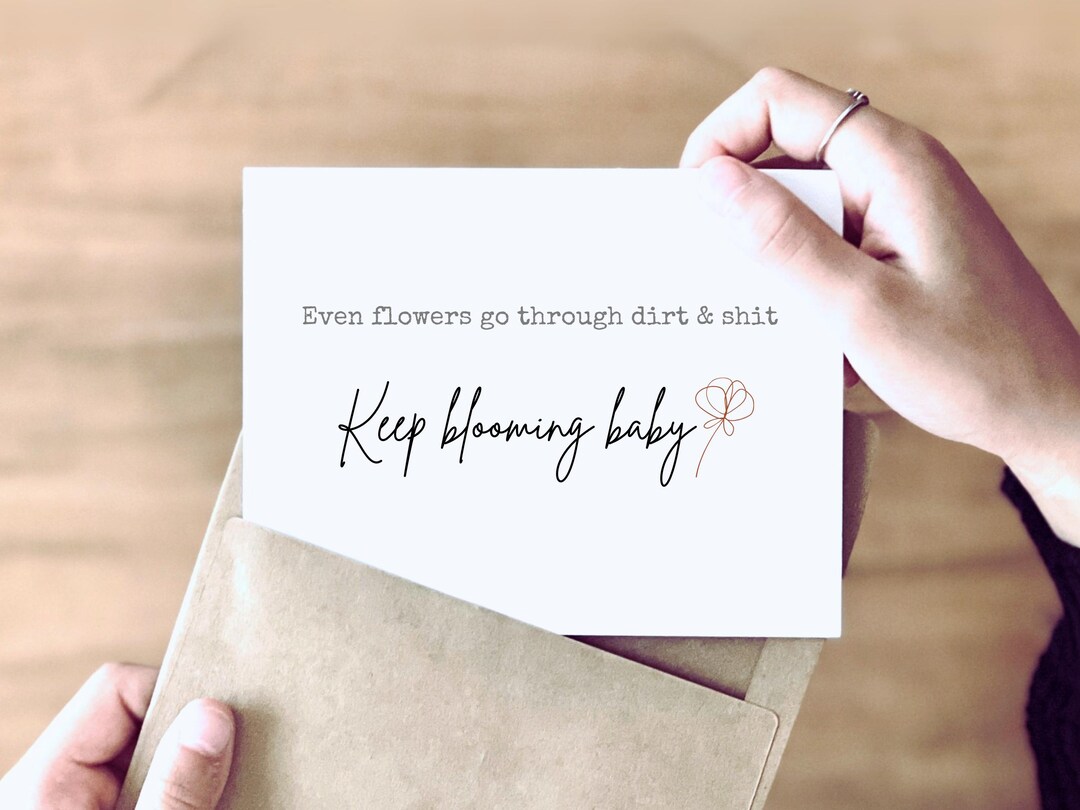 Even flowers go through dirt & shit
Keep blooming baby